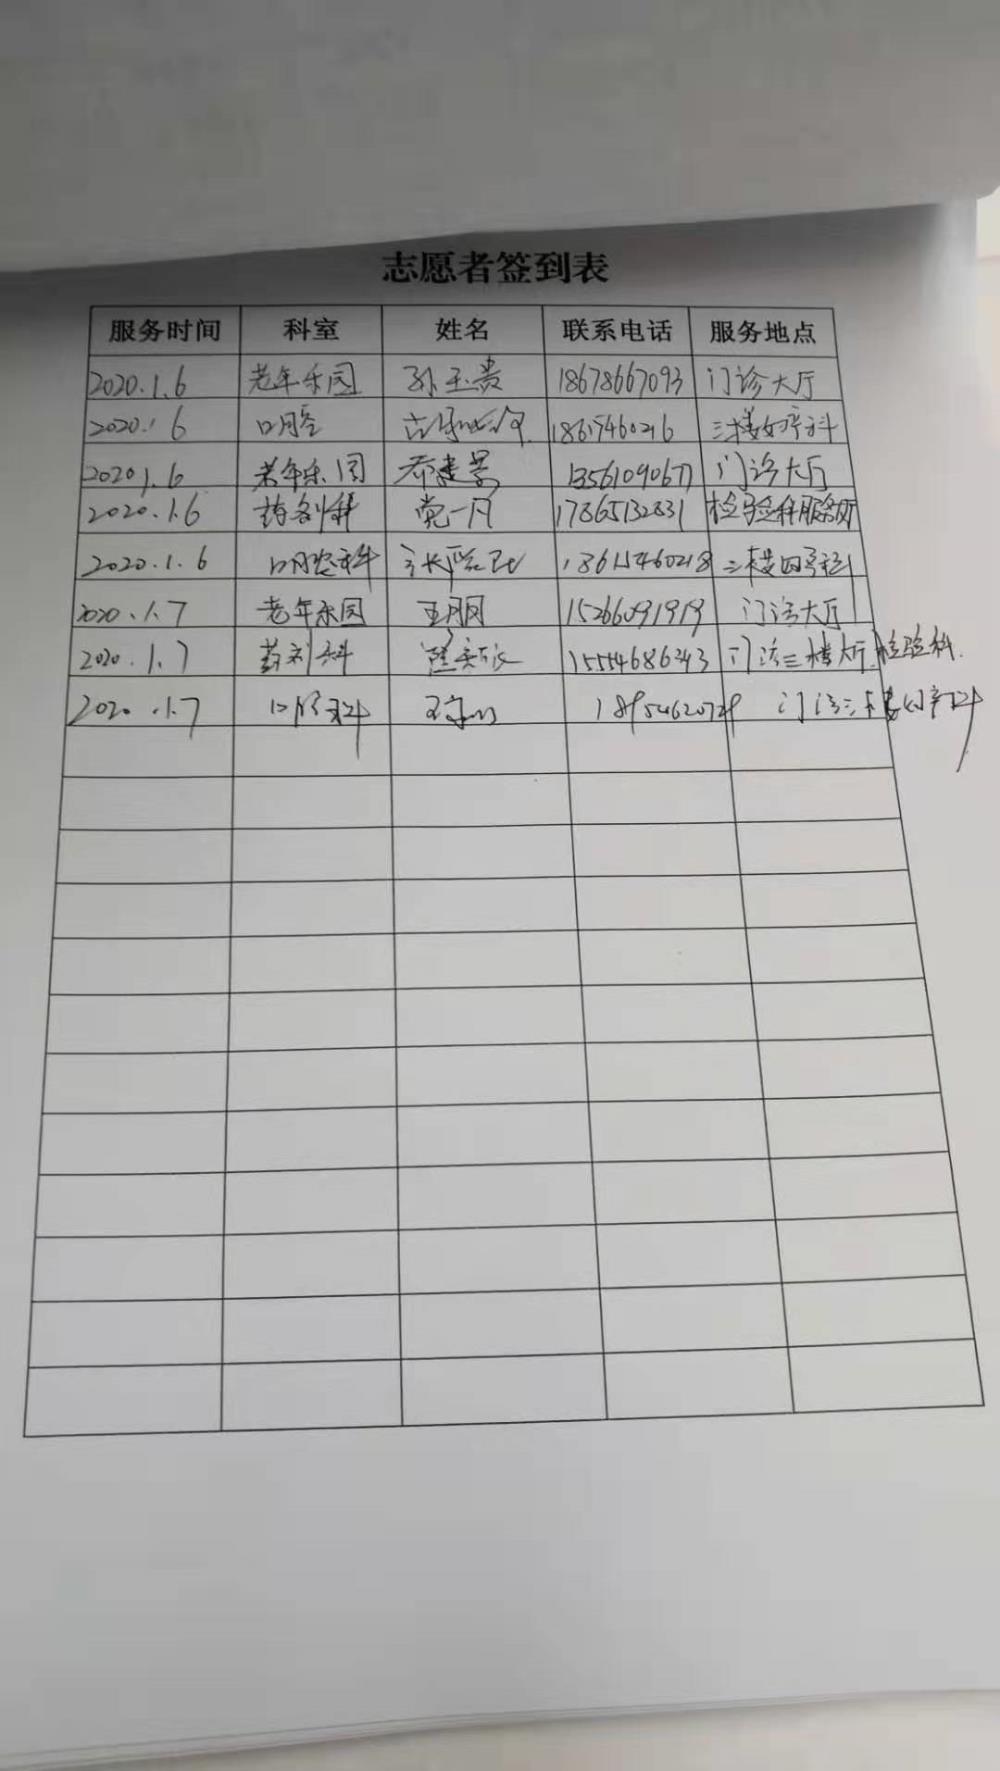 志愿者签到表
服务时间 科室 姓名 联系电话 服务地点
2020.1.6 老年乐园 孙玉贵 18678667093 门诊大厅
2020.1 6 口腔 18615460216 三楼妇产科
2020 1.6 老年乐园 乔建景 13561090677 门诊大厅
2020.1.6 药剂科 党一凡 17865132831 检验科服务厅
2020.1.6 口腔科 18615460218
2020.1.7 老年乐园 王朋 15266091919 门诊大厅
2020.1.7 药剂科 15554686343 门诊三楼大厅.检验科.
2020.1.7 口腔科 18954620729 门诊三楼妇产科